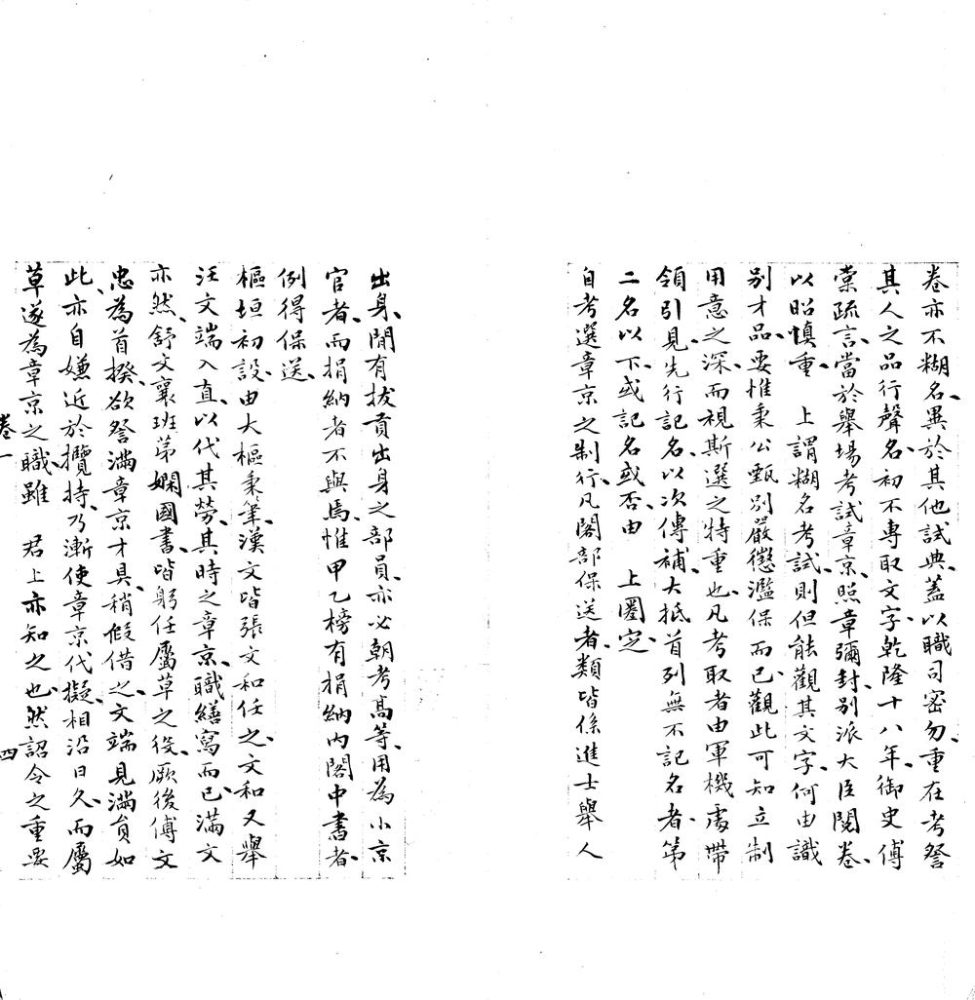 卷亦不糊名、異於其他試典、蓋以職司密勿、重在考詧
其人之品行聲名、初不專取文字、乾隆十八年、御史傅
棠疏言、當於舉場考試章京、照章彌封、別派大臣閱卷、
以昭慎重、 上謂糊名考試、則但能觀其文字、何由識
別才品、要惟秉公甄別、嚴懲濫保而已、觀此可知立制
用意之深、而視斯選之特重也、凡考取者由軍機處帶
領引見、先行記名、以次傳補、大抵首列無不記名者、第
二名以下、或記名或否、由 上圈定、
自考選章京之制行、凡閣部保送者、類皆係進士舉人
出身、閒有拔貢出身之部員、亦必朝考高等、用為小京
官者、而捐納者不與焉、惟甲乙榜有捐納內閣中書者、
例得保送、
樞垣初設、由大樞秉筆、漢文皆張文和任之、文和又舉
汪文端入直、以代其勞、其時之章京、職繕寫而已、滿文
亦然、舒文襄班第嫻國書、皆躬任屬草之役、厥後傅文
忠為首揆、欲詧滿章京才具、稍假借之、文端見滿員如
此、亦自嫌近於攬持、乃漸使章京代擬、相沿日久、而屬
草遂為章京之職、雖 君上亦知之也、然詔令之重要
卷一 四